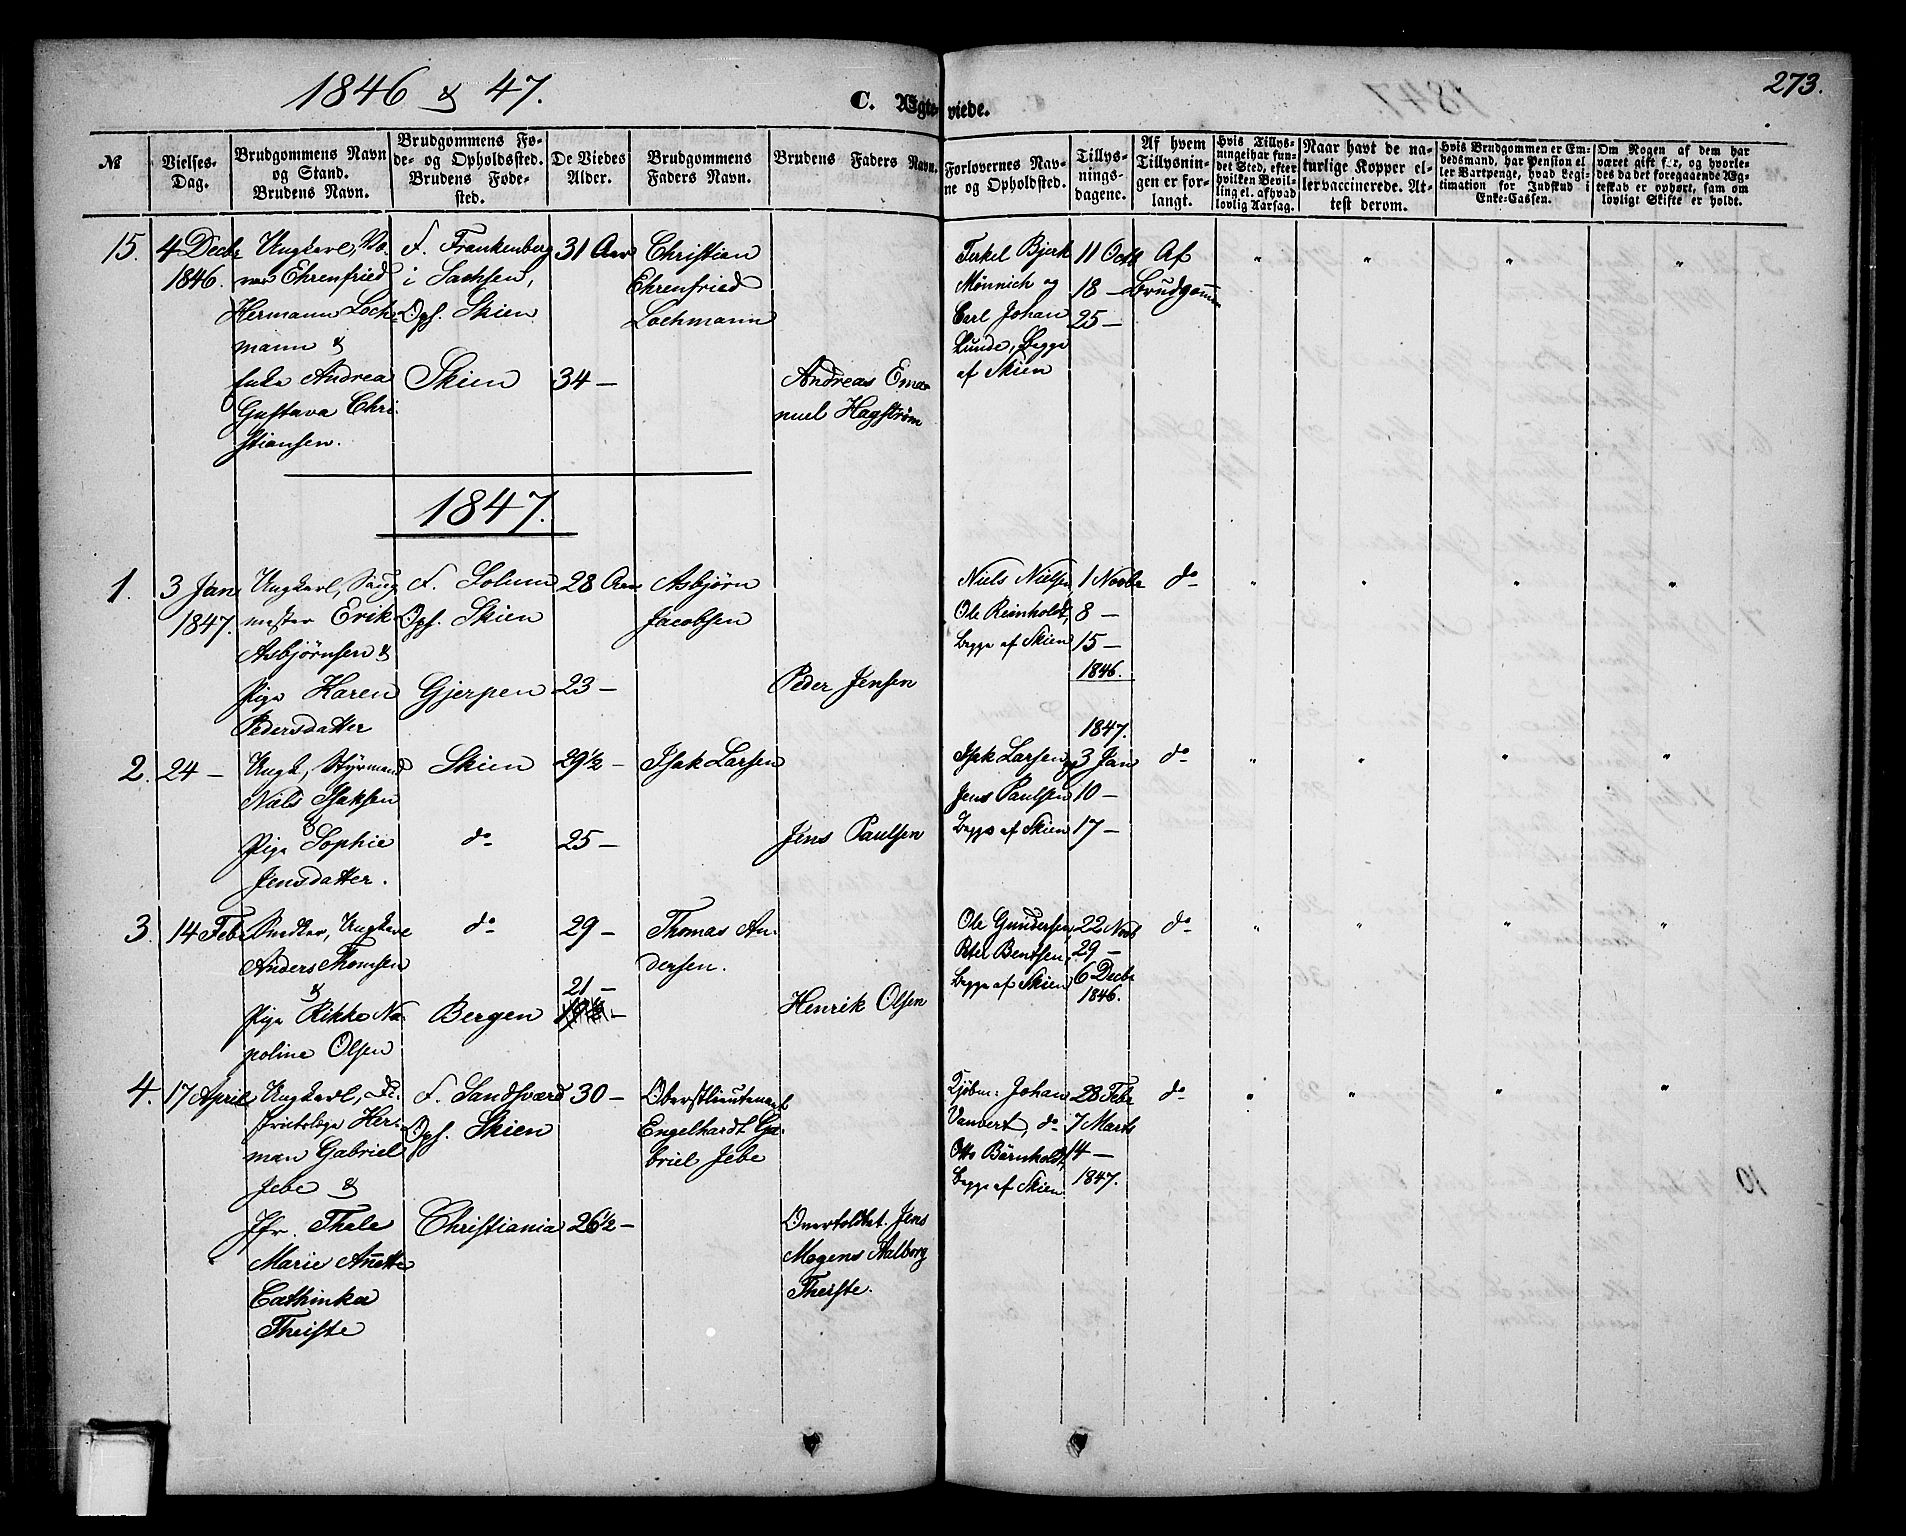 1846 & 47.
C. Ægteviede.
273.
№
Vielses-
Dag.
Brudgommens Navn
og Stand.
Brudens Navn.
Brudgommens Fø-
de- og Opholdssted.
Brudens Føde-
sted.
De Viedes
Alder.
Brudgommens
Faders Navn.
Brudens Faders Navn.
Forlovernes Nav-
ne og Opholdsted.
Tillys-
nings-
dagene.
Af hvem
Tillysnin-
gen er for-
langt.
Hvis Tillys-
ningei har fun-
det Sted, efter
hvilken Bevil-
ling el. af hvad
lovlig Aarsag.
Naar havt de na-
turlige Kopper el-
ler vaccinerede. At-
test derom.
Hvis Brudgommen er Em-
bedsmand, har Pension el-
ler Vartpenge, hvad Legi-
timation for Indskud i
Enke-Cassen.
Om Nogen af dem har
været gift før, og hvorle-
des da det foregaaende Æg-
teskab er ophørt, sam om
lovligt Skifte er holdt.
15.
4 Decbr
1846.
Ungkarl,
Ehrenfried
Hermann Loch-
mann &
Enke Andrea
Gustava Chri-
stiansen.
F. Frankenberg
i Sachsen,
Oph. Skien
Skien
31 Aar
34 —
Christian
Ehrenfried
Lochmann
Andreas Ema-
nuel Hagstrøm
Terkel Bjerk
Mönnich og
Carl Johan
Lunde, Begge
af Skien
11 Octb
18 —
25 —
Af
Brudgommen
1847.
1.
3 Jan
1847.
Ungkarl, Saug-
mester Erik
Asbjørnsen &
Pige Karen
Pedersdatter
F. Solum
Oph. Skien
Gjerpen
28 Aar
23 —
Asbjørn
Jacobsen
Peder Jensen
Niels Nielsen,
Ole Reinholdt,
Begge af Skien
1 Novbr
8 —
15 —
1846.
do
2.
24 —
Ungk, Styrmand
Niels Isaksen
&
Pige Sophie
Jensdatter.
Skien
do
29½ —
25 —
Isak Larsen
Jens Paulsen
Isak Larsen,
Jens Paulsen
Begge af Skien
1847.
3 Jan
10 —
17 —
do
3.
14 Febr
Bødker, Ungkarl
Anders Thomsen
&
Pige Rikke Na-
poline Olsen
do
Bergen
29 —
21 —
Thomas An-
dersen.
Henrik Olsen
Ole Gundersen,
Peter Bentsen,
Begge af Skien
22 Novb
29 —
6 Decbr
1846.
do
4.
17 April
Ungkarl, Di-
strictslæge Her-
man Gabriel
Jebe &
Jfr. Thale
Marie Anette
Cathinka
Theiste
F. Sandsværd
Oph. Skien
Christiania
30 —
26½ —
Oberstlieutenant
Engelhardt Ga-
briel Jebe
Overtoldbet. Jens
Mogens Aalborg
Theiste.
Kjøbm: Johan
Vauvert, do
Otto Bärnholdt,
Begge af Skien
28 Febr
7 Marts
14 —
1847.
do